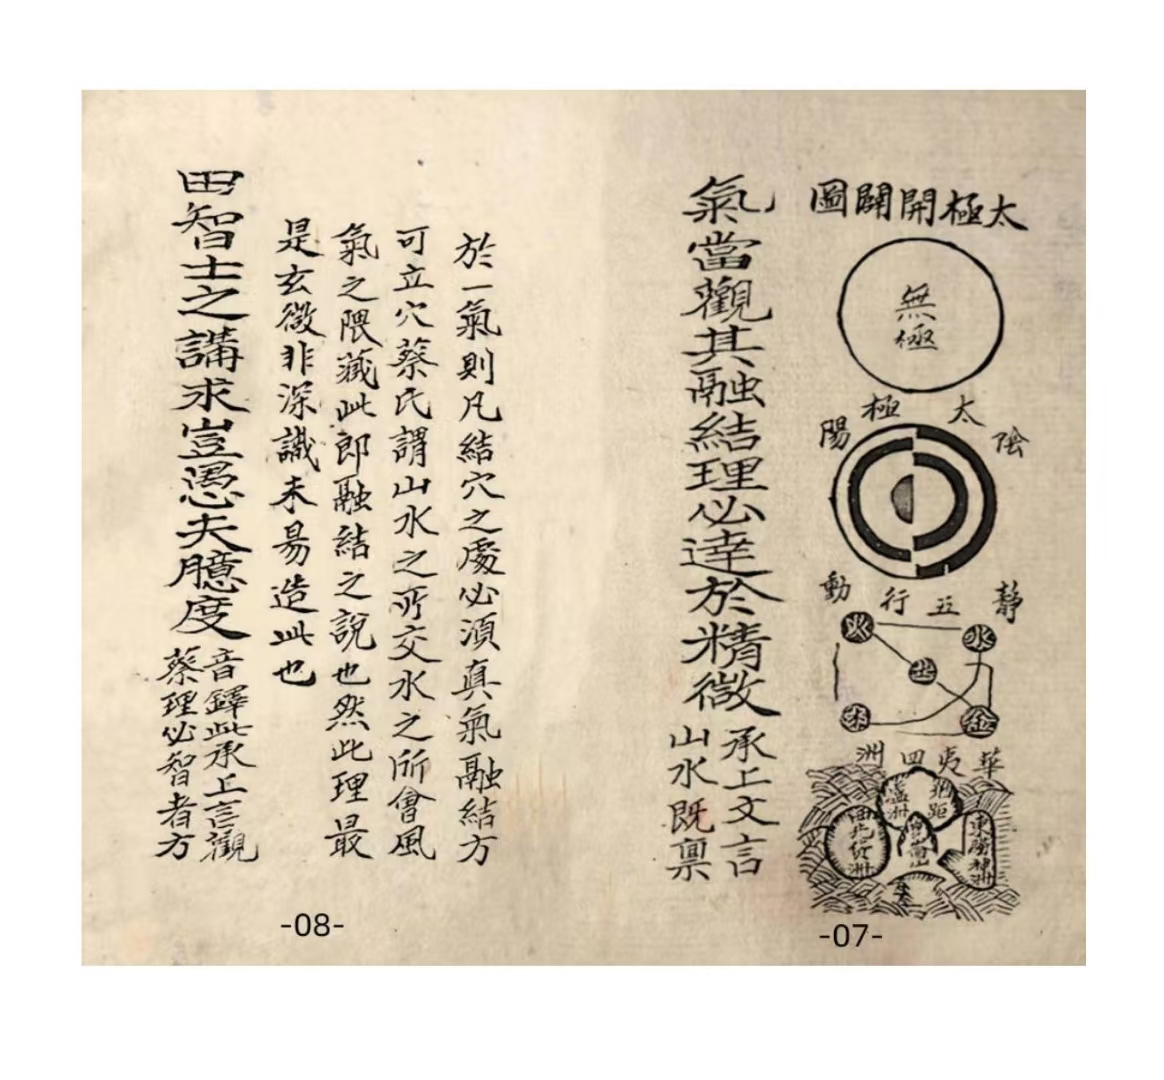 太極開闢圖
無極
太極
陰
陽
靜
動
五行
火
水
土
木
金
華夷四洲
東勝神洲
氣當觀其融結理必達於精微
承上文言
山水既稟
-07-
於一氣則凡結穴之處必須真氣融結方
可立穴蔡氏謂山水之所交水之所會風
氣之隈藏此即融結之說也然此理最
是玄微非深識未易造此也
田智士之講求豈愚夫臆度
音鐸此承上言觀
蔡理必智者方
-08-